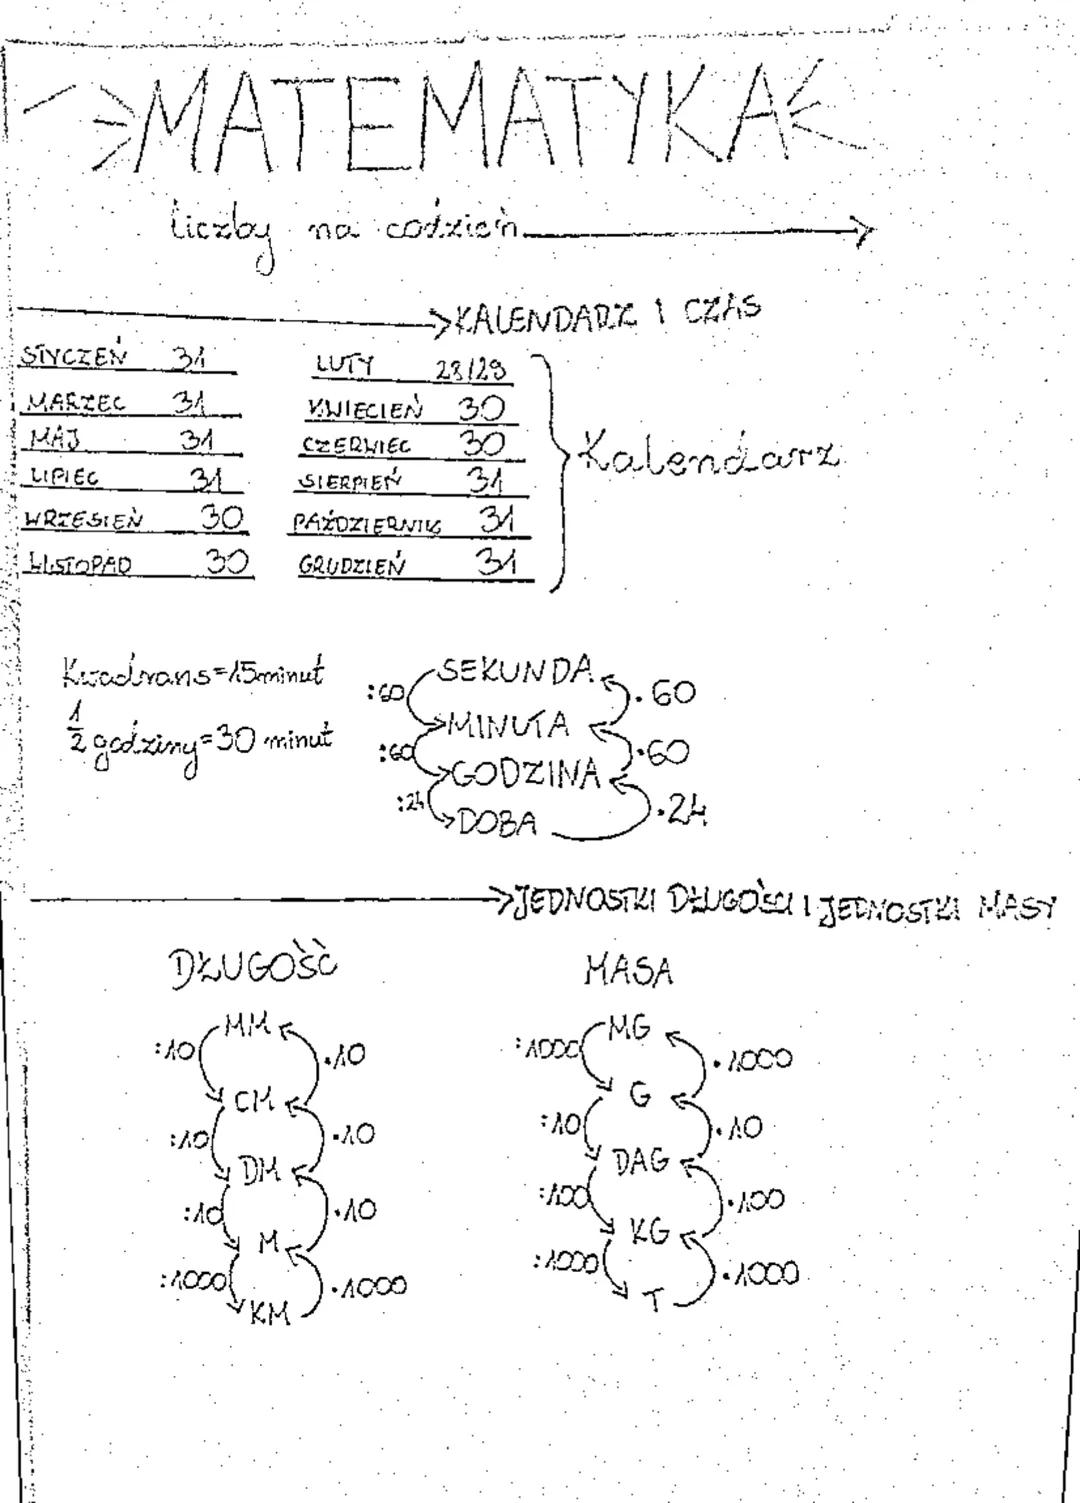 MATEMATYKA
liczby na codzień
KALENDARZ I CZAS
STYCZEŃ 31 LUTY 28/29
MARZEC 31 KWIECIEŃ 30
MAJ 31 CZERWIEC 30
LIPIEC 31 SIERPIEŃ 31
WRZESIEŃ 30 PAŹDZIERNIK 31
LISTOPAD 30 GRUDZIEŃ 31
Kalendarz
Kwadrans=15minut
1/2 godziny=30 minut
SEKUNDA
:60 ·60
MINUTA
:60 ·60
GODZINA
:24 ·24
DOBA
JEDNOSTKI DŁUGOŚCI I JEDNOSTKI MASY
DŁUGOŚĆ
MM
:10 ·10
CM
:10 ·10
DM
:10 ·10
M
:1000 ·1000
KM
MASA
MG
:1000 ·1000
G
:10 ·10
DAG
:100 ·100
KG
:1000 ·1000
T